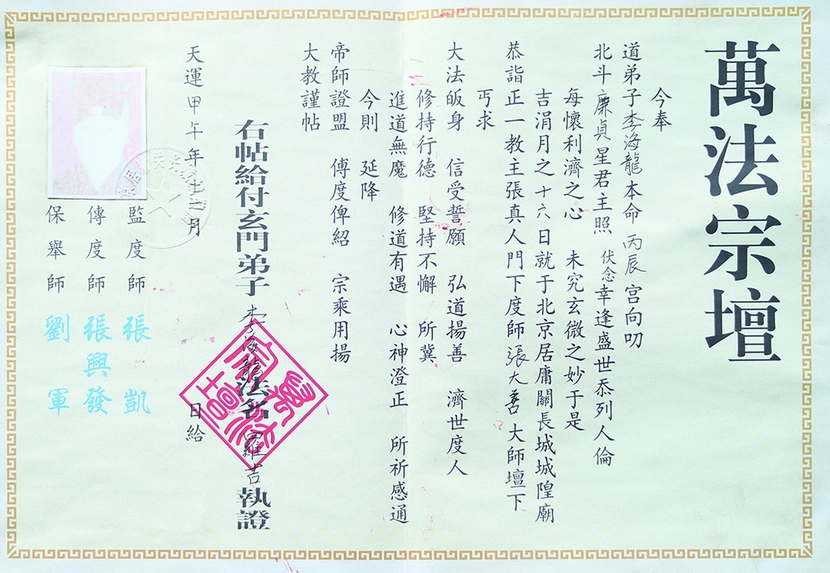 萬法宗壇
今奉
道弟子李海龍本命丙辰宫向叨
北斗廉貞星君主照 伏念幸逢盛世忝列人倫
每懷利濟之心 未究玄微之妙于是
吉涓月之十六日就于北京居庸關長城城隍廟
恭詣正一教主張真人門下度師張大善大師壇下
丐求
大法皈身 信受誓願 弘道揚善 濟世度人
修持行德 堅持不懈 所冀
進道無魔 修道有遇 心神澄正 所祈感通
今則 延降
帝師證盟 傳度俾紹 宗乘用揚
大教謹帖
右帖給付玄門弟子李海龍法名羅吉執證
天運甲午年十二月 日給
監度師 張凱
傳度師 張興發
保舉師 劉軍
萬法宗壇